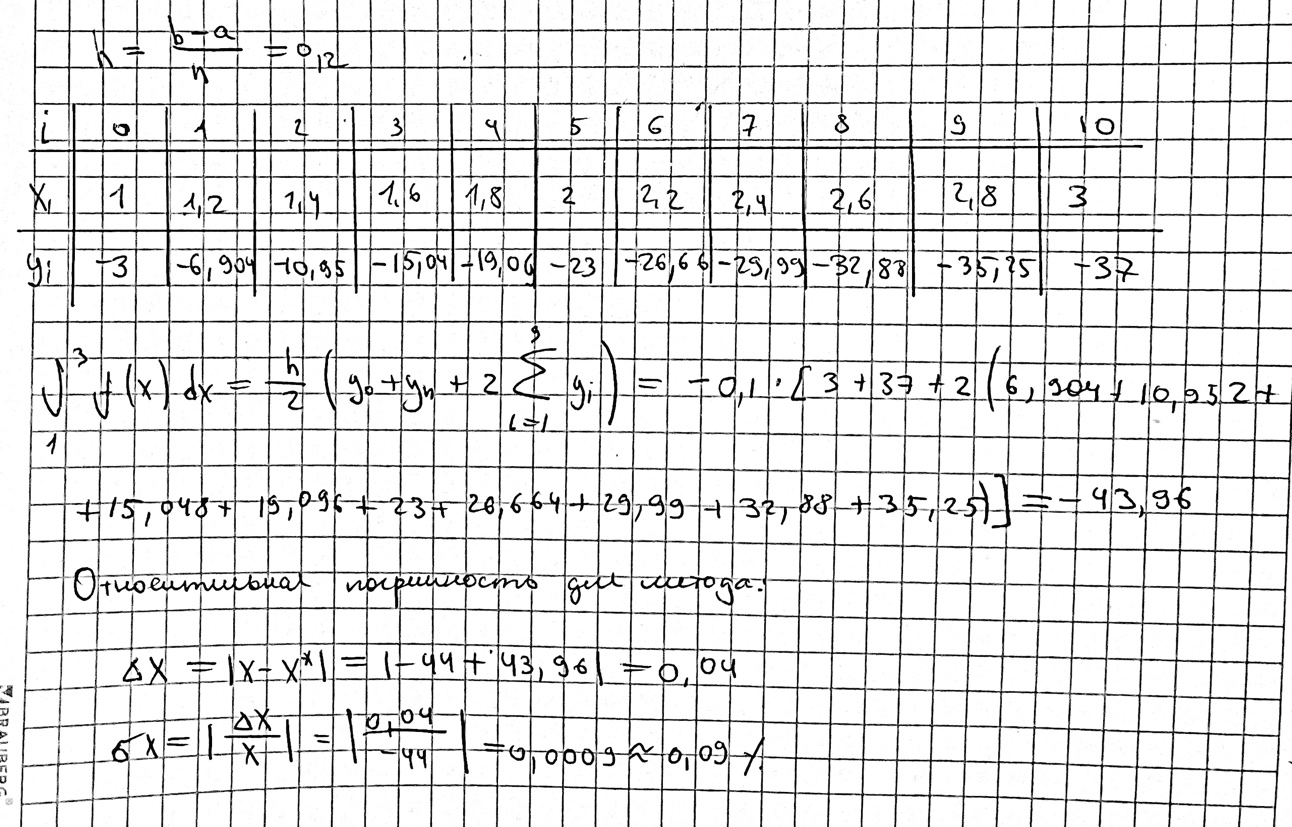 h = (b-a)/n = 0,12
i | 0 | 1 | 2 | 3 | 4 | 5 | 6 | 7 | 8 | 9 | 10
Xi | 1 | 1,2 | 1,4 | 1,6 | 1,8 | 2 | 2,2 | 2,4 | 2,6 | 2,8 | 3
yi | -3 | -6,904 | -10,95 | -15,04 | -19,06 | -23 | -26,66 | -29,99 | -32,88 | -35,25 | -37
∫₁³ f(x) dx = h/2 (y₀ + yₙ + 2 ∑ᵢ₌₁⁹ yᵢ) = -0,1 · [3 + 37 + 2 (6,904 + 10,952 +
+ 15,048 + 19,096 + 23 + 26,664 + 29,99 + 32,88 + 35,25)] = -43,96
Относительная погрешность для метода:
ΔX = |X - X*| = |-44 + 43,96| = 0,04
δX = |ΔX/X| = |0,04/-44| = 0,0009 ≈ 0,09 %